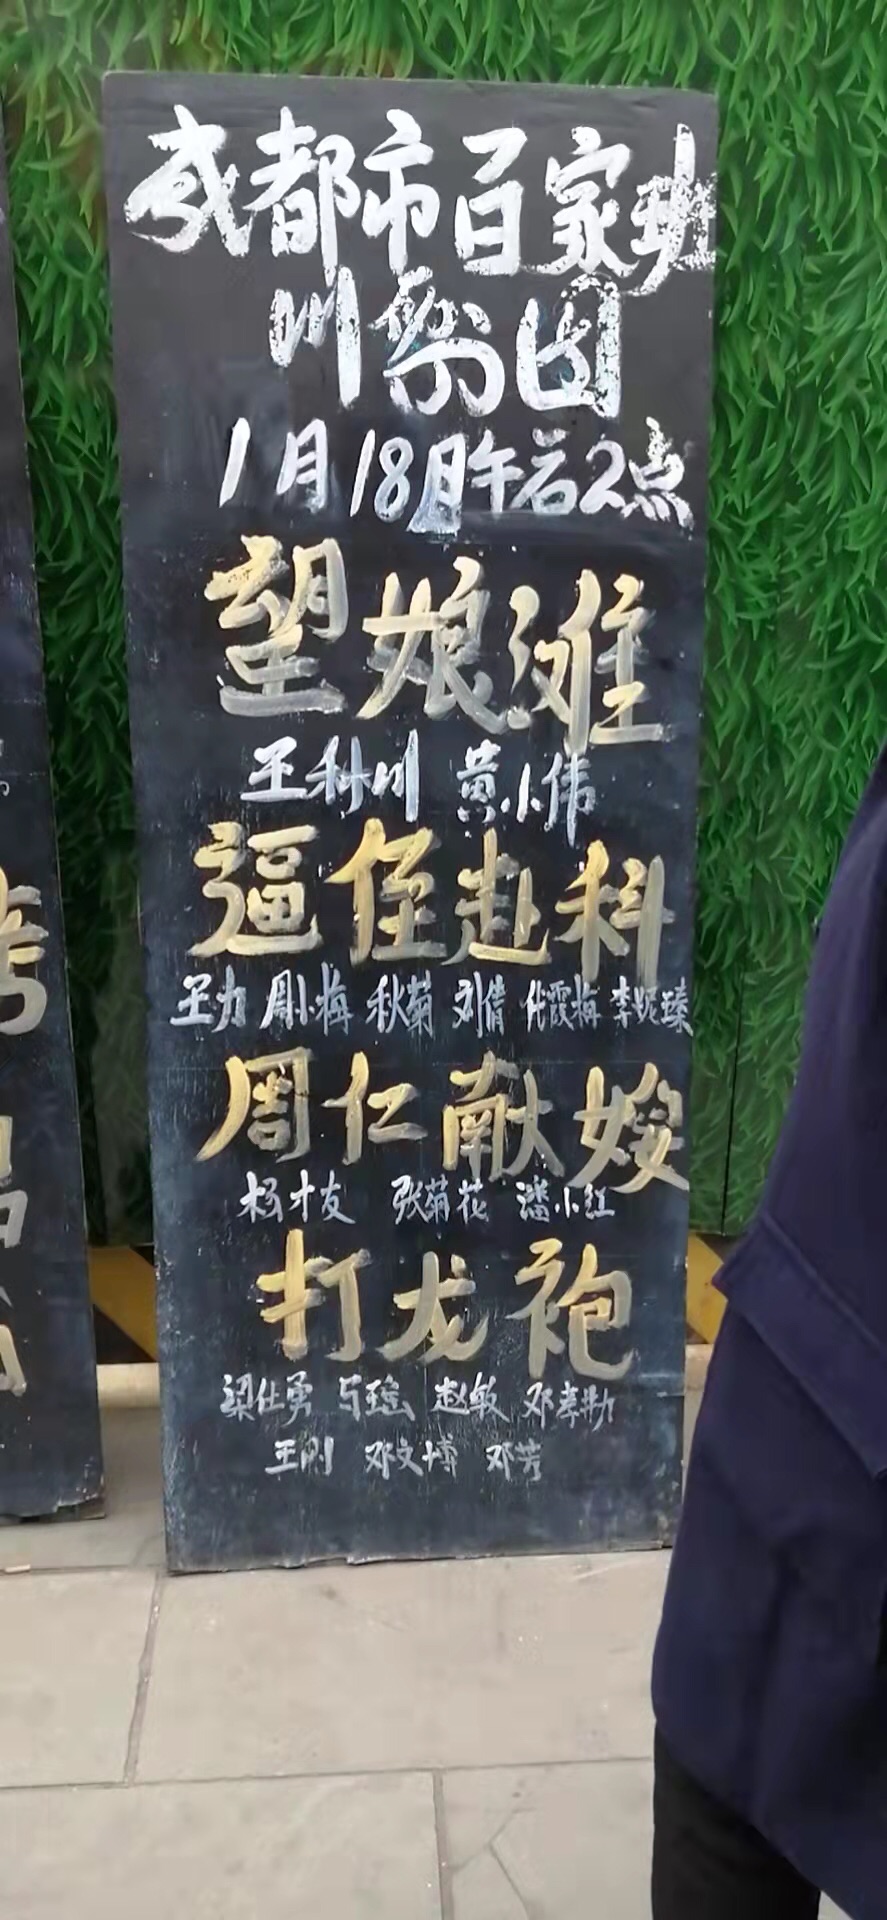 成都市百家班
川剧团
1月18日午后2点
望娘滩
王科川 黄小伟
逼侄赴科
王力 周小梅 秋菊 刘倩 代霞梅 李妮臻
周仁献嫂
杨才友 张菊花 潘小红
打龙袍
梁仕勇 马瑶 赵敏 邓孝勤
王刚 邓文博 邓芳